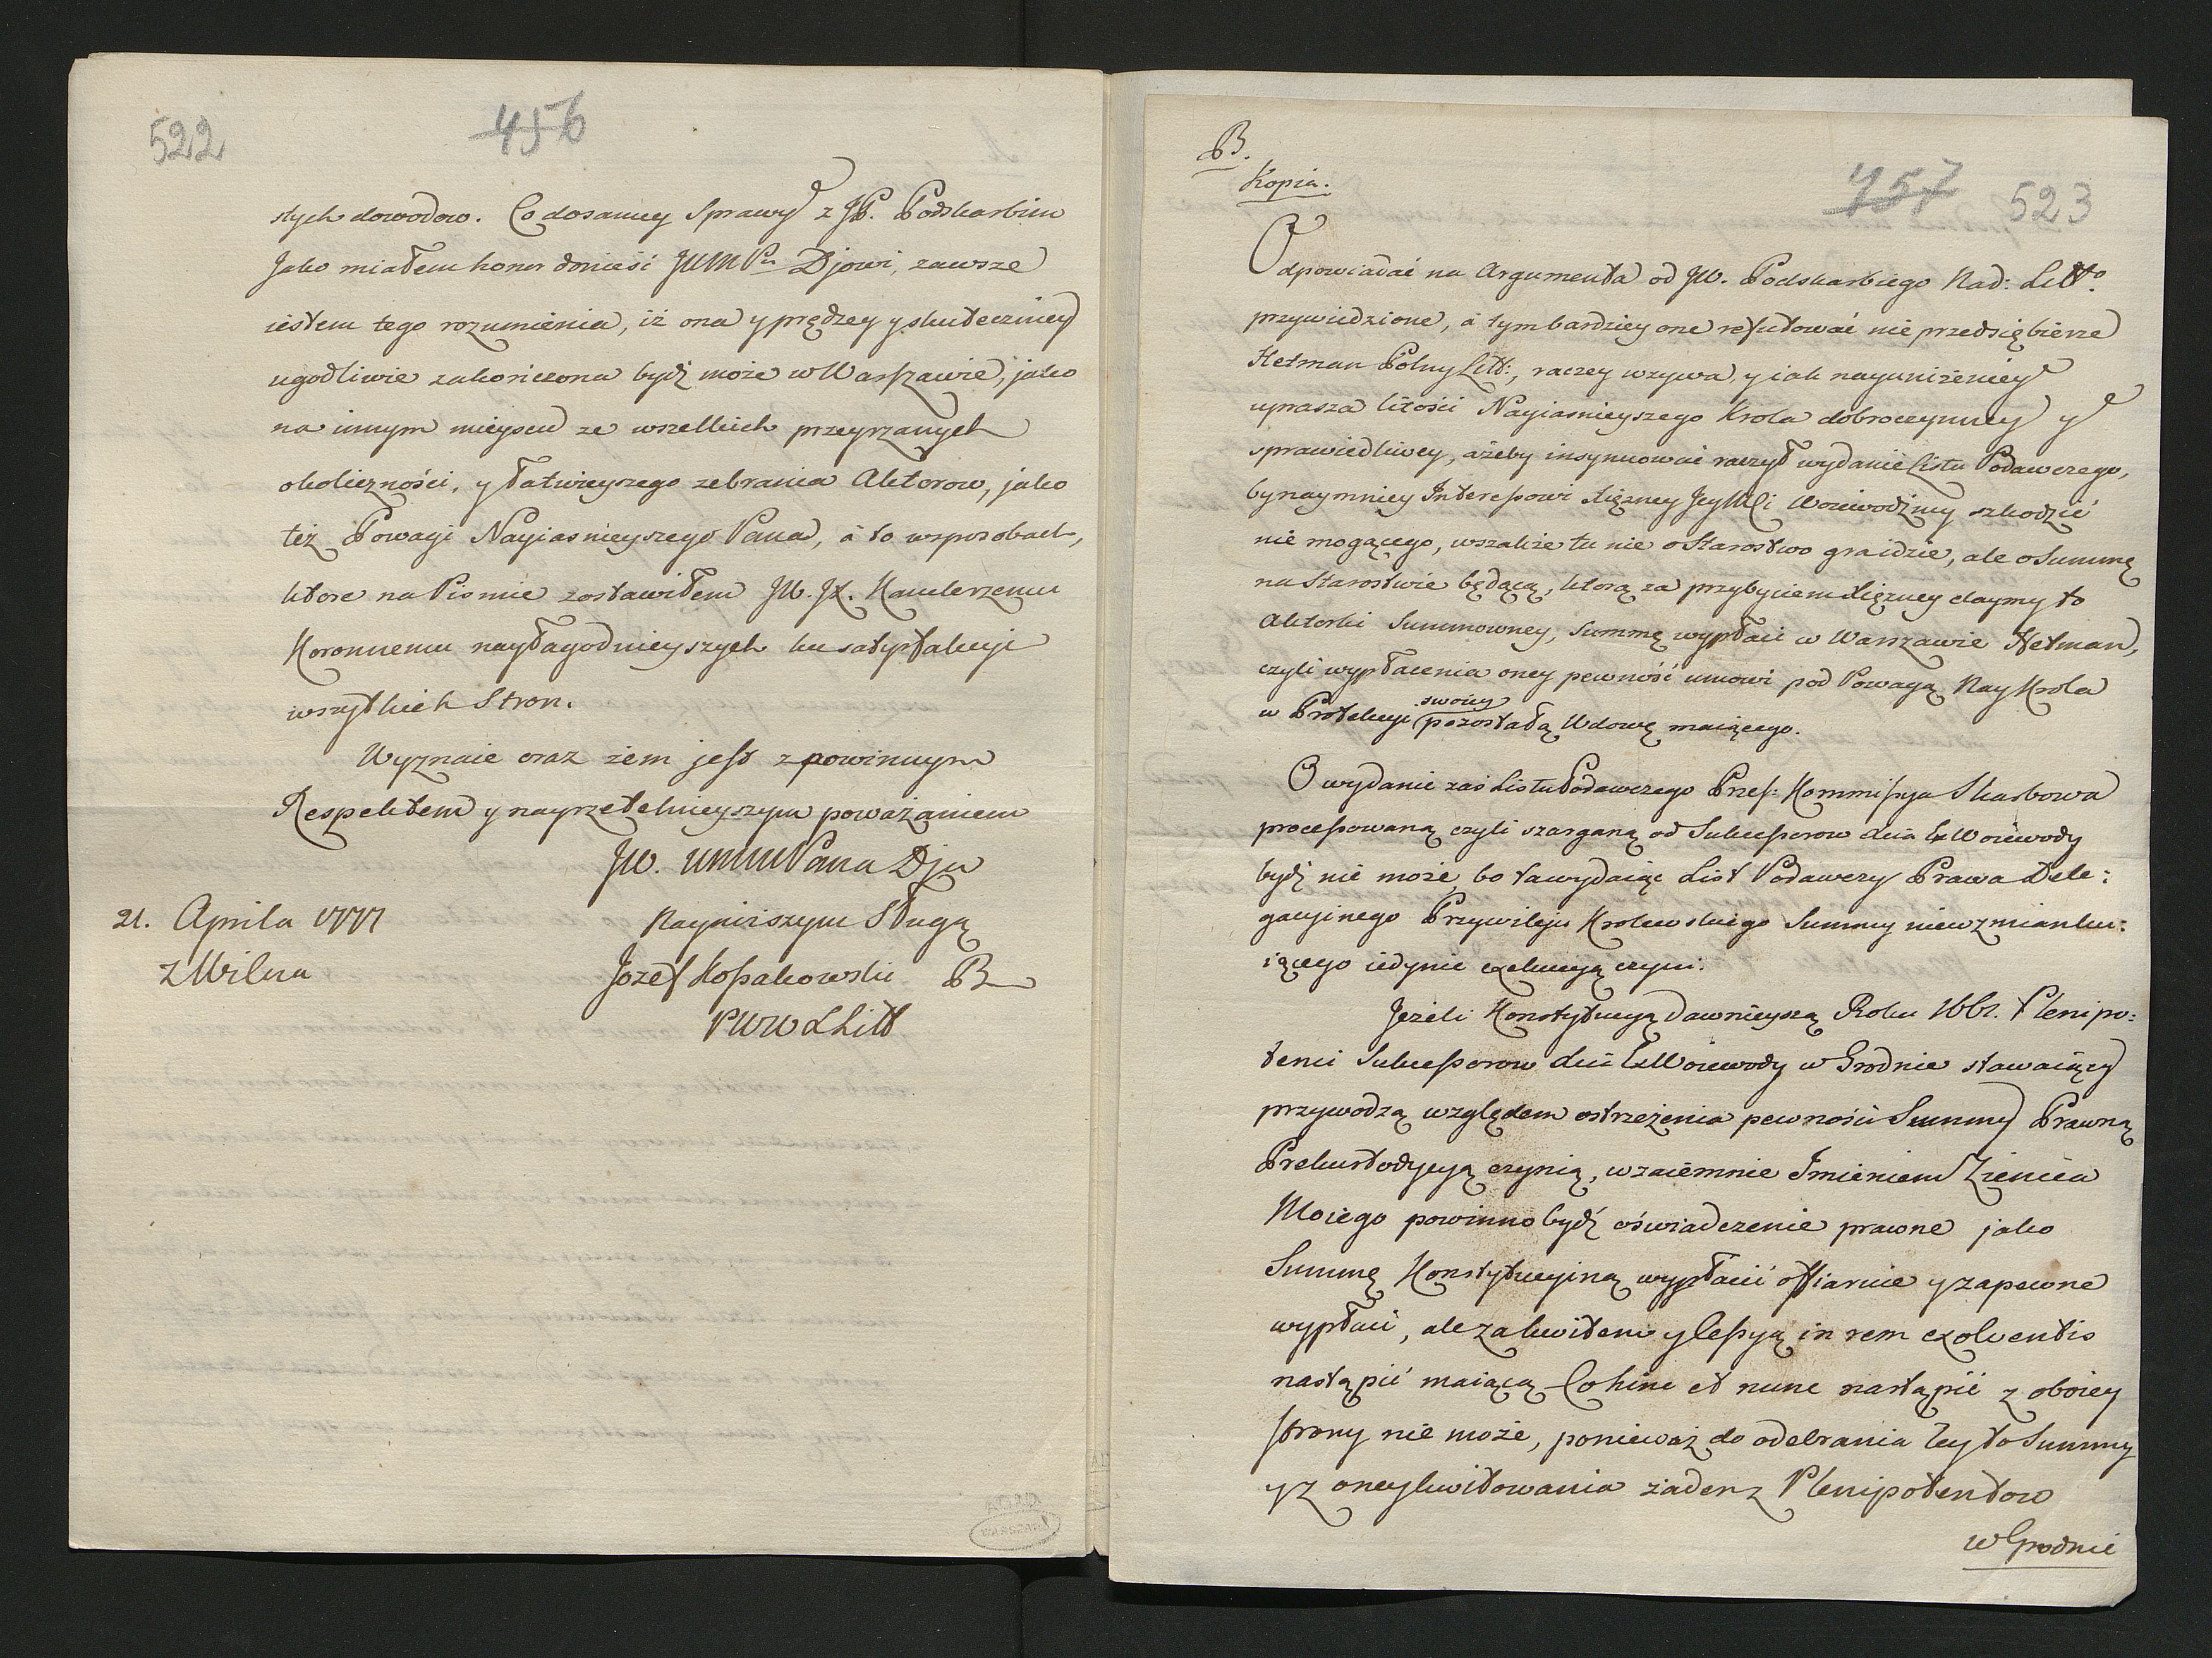 522
456
stych dowodow. Co do samey Sprawy z JP. Podskarbim
Jako miałem honor donieść JWWPu Djowi, zawsze
iestem tego rozumienia, iż ona y prędzey y skuteczniey
ugodliwie zakończona bydź może w Warszawie, jako
na innym mieyscu ze wszelkich przeyrzanych
okoliczności, y łatwieyszego zebrania Aktorow, jako
też Powagi Nayiasnieyszego Pana, á to w sposobach,
ktore na Pismie zostawiłem JW. JX. Kanclerzemu
Koronnemu nayłagodnieyszych ku satysfakcyi
wszystkich Stron.
Wyznaie oraz żem jest z powinnym
Respektem y nayrzetelnieyszym poważaniem
JW. WMM Pana Dja
21. Aprila 1777
Nayniższym Sługą
z Wilna
Jozef Kossakowski B
PWWdLitt
B.
Kopia.
457
523
Odpowiadać na Argumenta od JW. Podskarbiego Nad: Litto
przywiedzione, á tym bardziey one refutować nie przedsiębierze
Hetman Polny Litt:, raczey wzywa, y iak nayuniżeniey
uprasza litości Nayiasnieyszego Krola dobroczynney y
sprawiedliwey, ażeby insynuować raczył wydanie Listu Podawczego,
bynaymniey Interessowi Xiężney Jeymci Woiewodźiny szkodzić
nie mogącego, wszakże tu nie o Starostwo gra idzie, ale o Summę
na Starostwie będącą, ktorą za przybyciem Xiężney claymy to
Aktorki Summowney, Summę wypłaci w Warszawie Hetman,
czyli wypłacenia oney pewność umowi pod Powagą Nay Krola
w Protekcyi swoiey pozostałą Wdowę maiącego.
O wydanie zaś Listu Podawczego Przes: Kommissya Skarbowa
processowaną czyli szarganą od Sukcessorow dcia Ex Woiewody
bydź nie może, bo ta wydaiąc List Podawczy Prawa Dele:
gacyinego Przywileju Krolewskiego Summy niewzmianku:
iącego iedynie exekucyą czyni.
Jeżeli Konstytucyą dawnieyszą Roku 1661. Plenipo:
tenci Sukcessorow dcia Ex Woiewody w Grodnie stawaiący
przywodzą względem ostrzeżenia pewności Summy Prawną
Prekustodycyą czynią, wzaiemnie Imieniem Zięcia
Moiego powinno bydź oświadczenie prawne jako
Summę Konstytucyiną wypłacić offiaruie y zapewne
wypłaci, ale za kwitem y Cessyą in rem exolventis
nastąpić maiącą Co hinc et nunc nastąpić z oboiey
strony nie może, ponieważ do odebrania tey to Summy
y z oney kwitowania żaden z Plenipotentow
w Grodnie